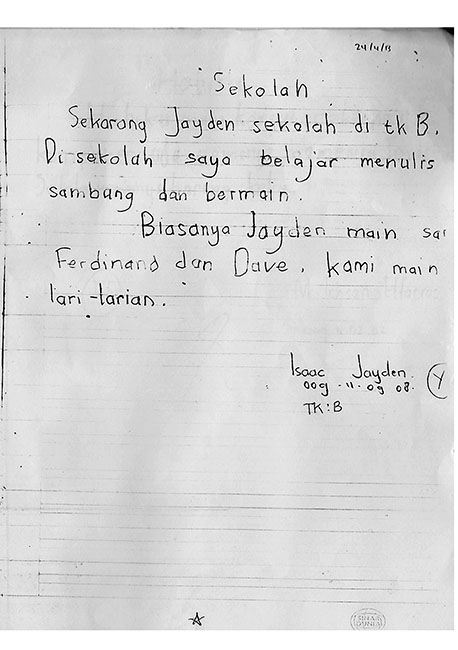 24/4/13
Sekolah
Sekarang Jayden sekolah di tk B.
Di sekolah saya belajar menulis
sambung dan bermain.
Biasanya Jayden main sa
Ferdinand dan Dave. kami main
lari-larian.
Isaac Jayden.
009 -11-09 08.
TK:B
Y
SINAR
DUNIA